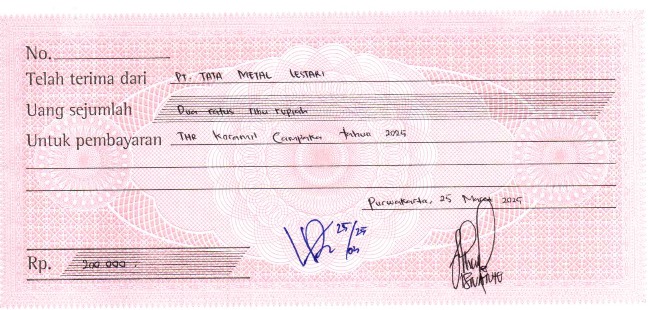 No.
Telah terima dari PT. TATA METAL LESTARI
Uang sejumlah Dua ratus ribu rupiah
Untuk pembayaran THR Koramil Campaka tahun 2025
Purwakarta, 25 Maret 2025
25/25
03
Rp. 200.000